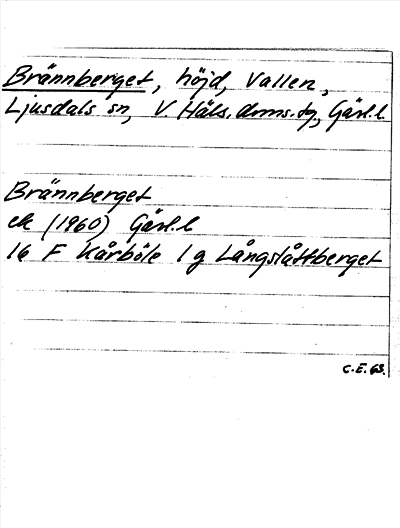 Brännberget, höjd, Vallen,
Ljusdals sn, V. Häls. doms. tg, Gävl. l
Brännberget
ek (1960) Gävl. l
16 F Kårböle 1 g Långslåttberget
C.E. 63.